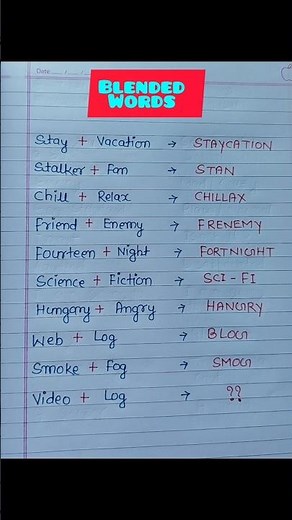 Date
BLENDED
WORDS
Stay + Vacation → STAYCATION
Stalker + Fan → STAN
Chill + Relax → CHILLAX
Friend + Enemy → FRENEMY
Fourteen + Night → FORTNIGHT
Science + Fiction → SCI - FI
Hungary + Angry → HANGRY
Web + Log → BLOG
Smoke + Fog → SMOG
Video + Log → ??